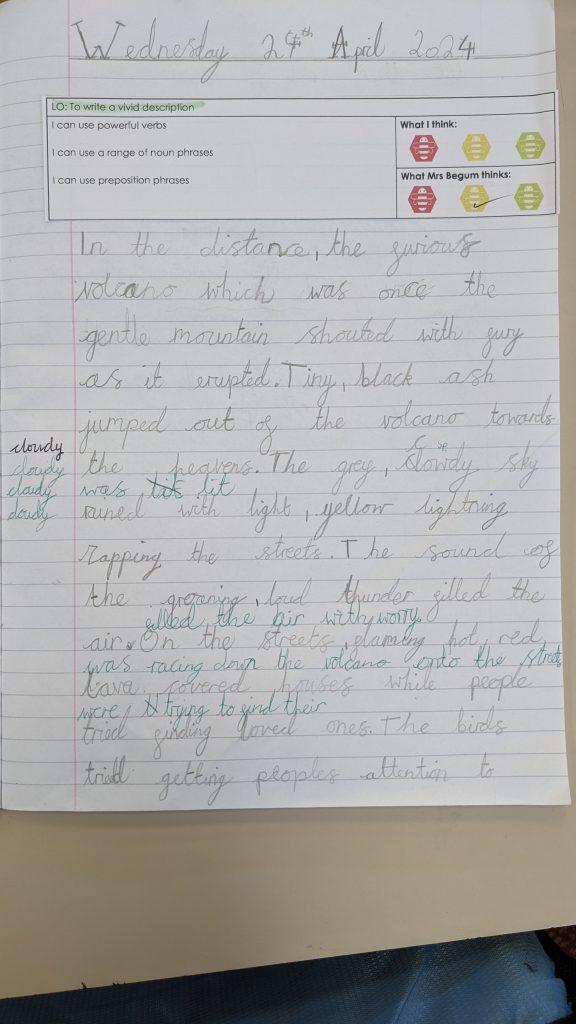 Wednesday 24th April 2024
LO: To write a vivid description
I can use powerful verbs
I can use a range of noun phrases
I can use preposition phrases
What I think:
What Mrs Begum thinks:
In the distance, the furious
volcano which was once the
gentle mountain shouted with fury
as it erupted. Tiny, black ash
jumped out of the volcano towards
cloudy
the heavens. The grey, clowdy sky
sp
cloudy
cloudy
cloudy
was lit
ruined with light, yellow lightning
zapping the streets. The sound of
the groaning, loud thunder filled the
filled the air with worry.
air. On the streets, flaming hot, red
was racing down the volcano onto the streets
lava covered houses while people
were trying to find their
tried finding loved ones. The birds
tried getting peoples attention to